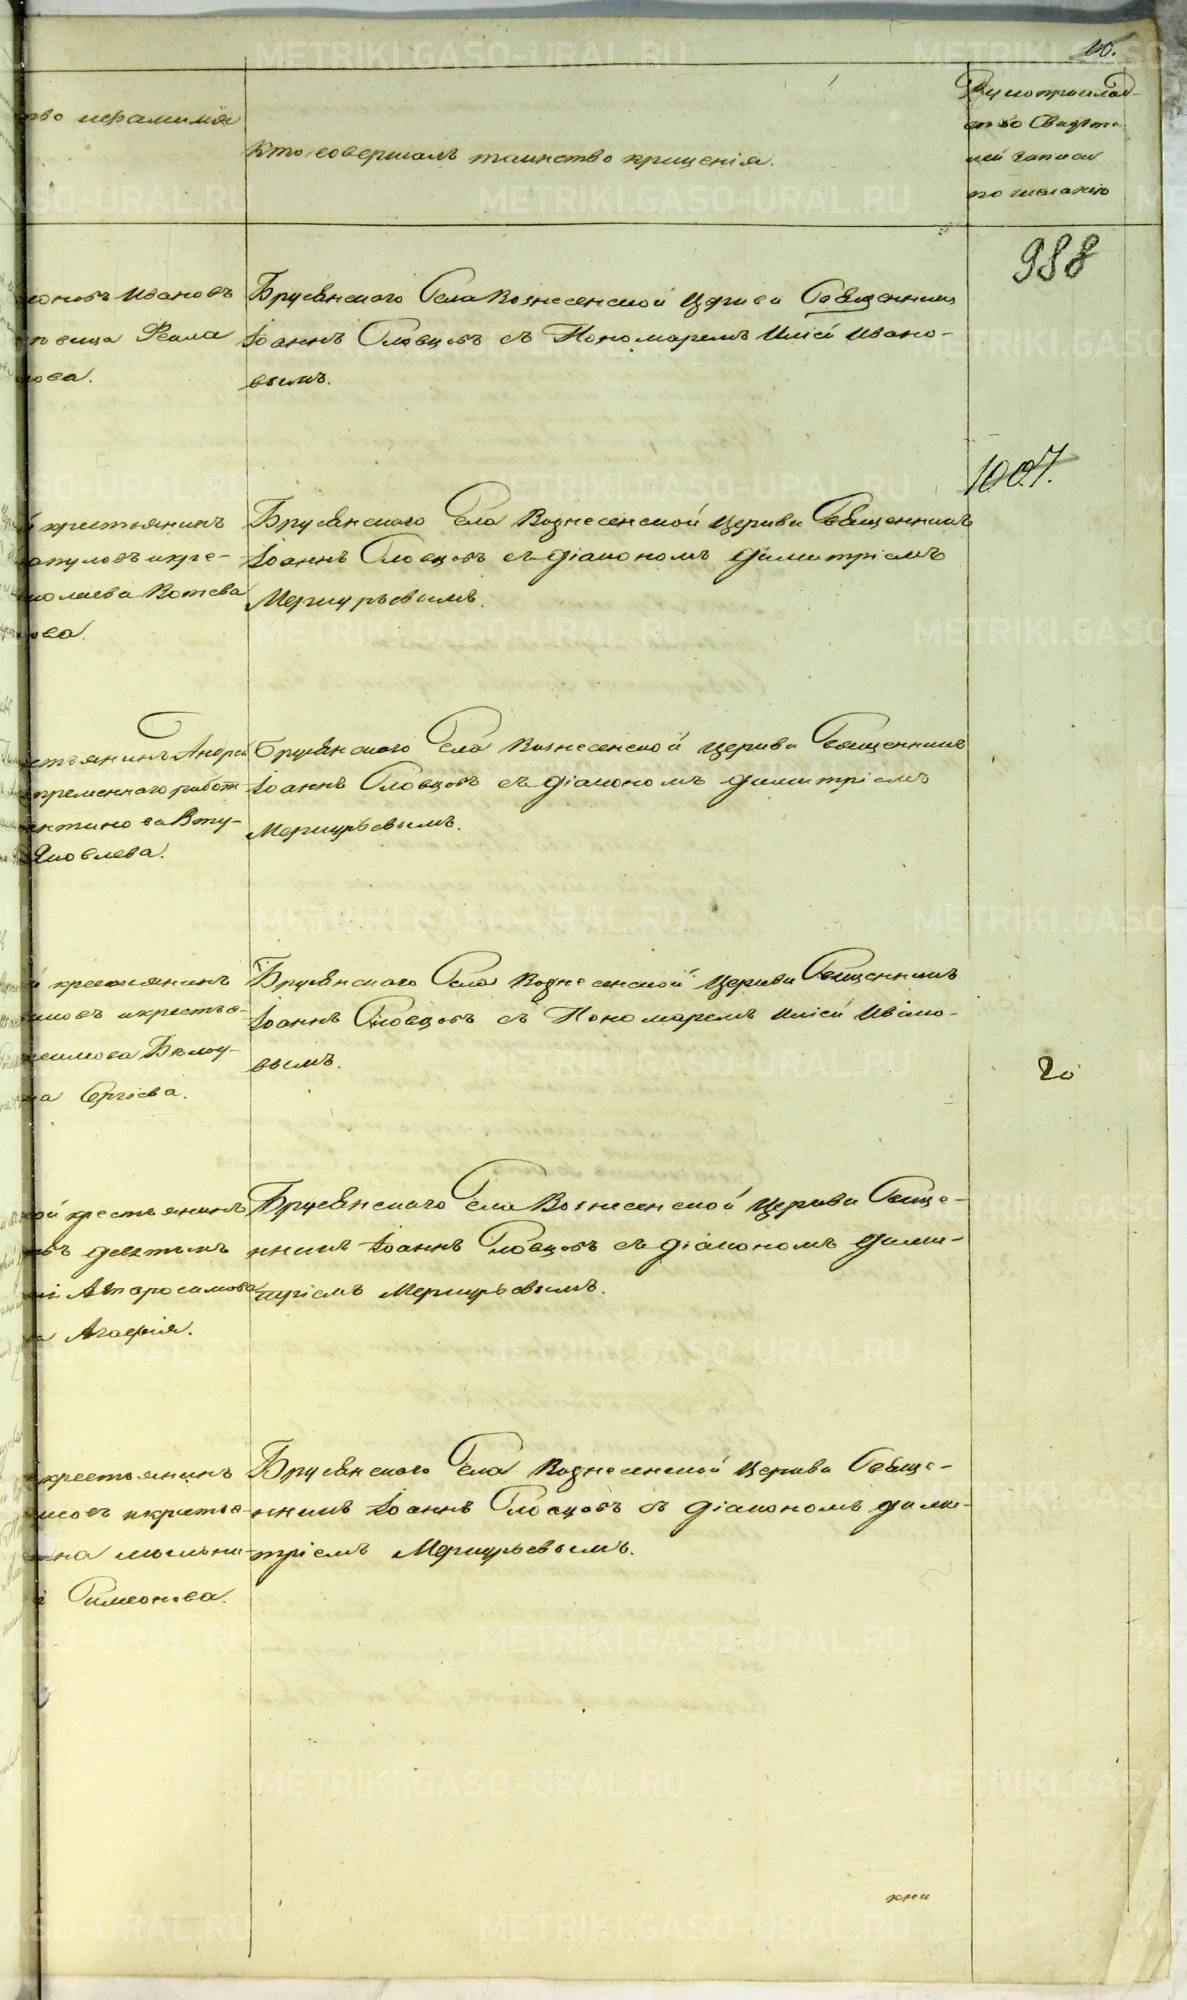 10.
тво ифамилія
Кто совершалъ таинство крещенія.
Рукоприклад-
ство Свидѣте
лей записи
по желанію
988
Ивановъ
Ѳекла
Брусянскаго Села Вознесенской Церкви Священникъ
Іоаннъ Словцовъ съ Пономаремъ Иліей Ивано-
вымъ.
1007.
й крестьянинъ
апуловъ икре-
колаева Котева
ова.
Брусянскаго Села Вознесенской Церкви Священникъ
Іоаннъ Словцовъ съ діакономъ Димитріемъ
Меркурьевымъ.
стьянинъ Андрей
временнаго работ
антинова Вту-
Яковлева.
Брусянскаго Села Вознесенской Церкви Священникъ
Іоаннъ Словцовъ съ діакономъ Димитріемъ
Меркурьевымъ.
й крестьянинъ
икрестья-
Бѣлоу-
на Сергіева.
Брусянскаго Села Вознесенской Церкви Священникъ
Іоаннъ Словцовъ съ Пономаремъ Иліей Ивано-
вымъ.
20
ой крестьянинъ
въ
Агафія.
Брусянскаго Села Вознесенской Церкви Свяще-
нникъ Іоаннъ Словцовъ съ діакономъ Дими-
тріемъ Меркурьевымъ.
крестьянинъ
ковъ икрестья-
Симеонова.
Брусянскаго Села Вознесенской Церкви Свяще-
нникъ Іоаннъ Словцовъ съ діакономъ Дими-
тріемъ Меркурьевымъ.
кни
METRIKI.GASO-URAL.RU